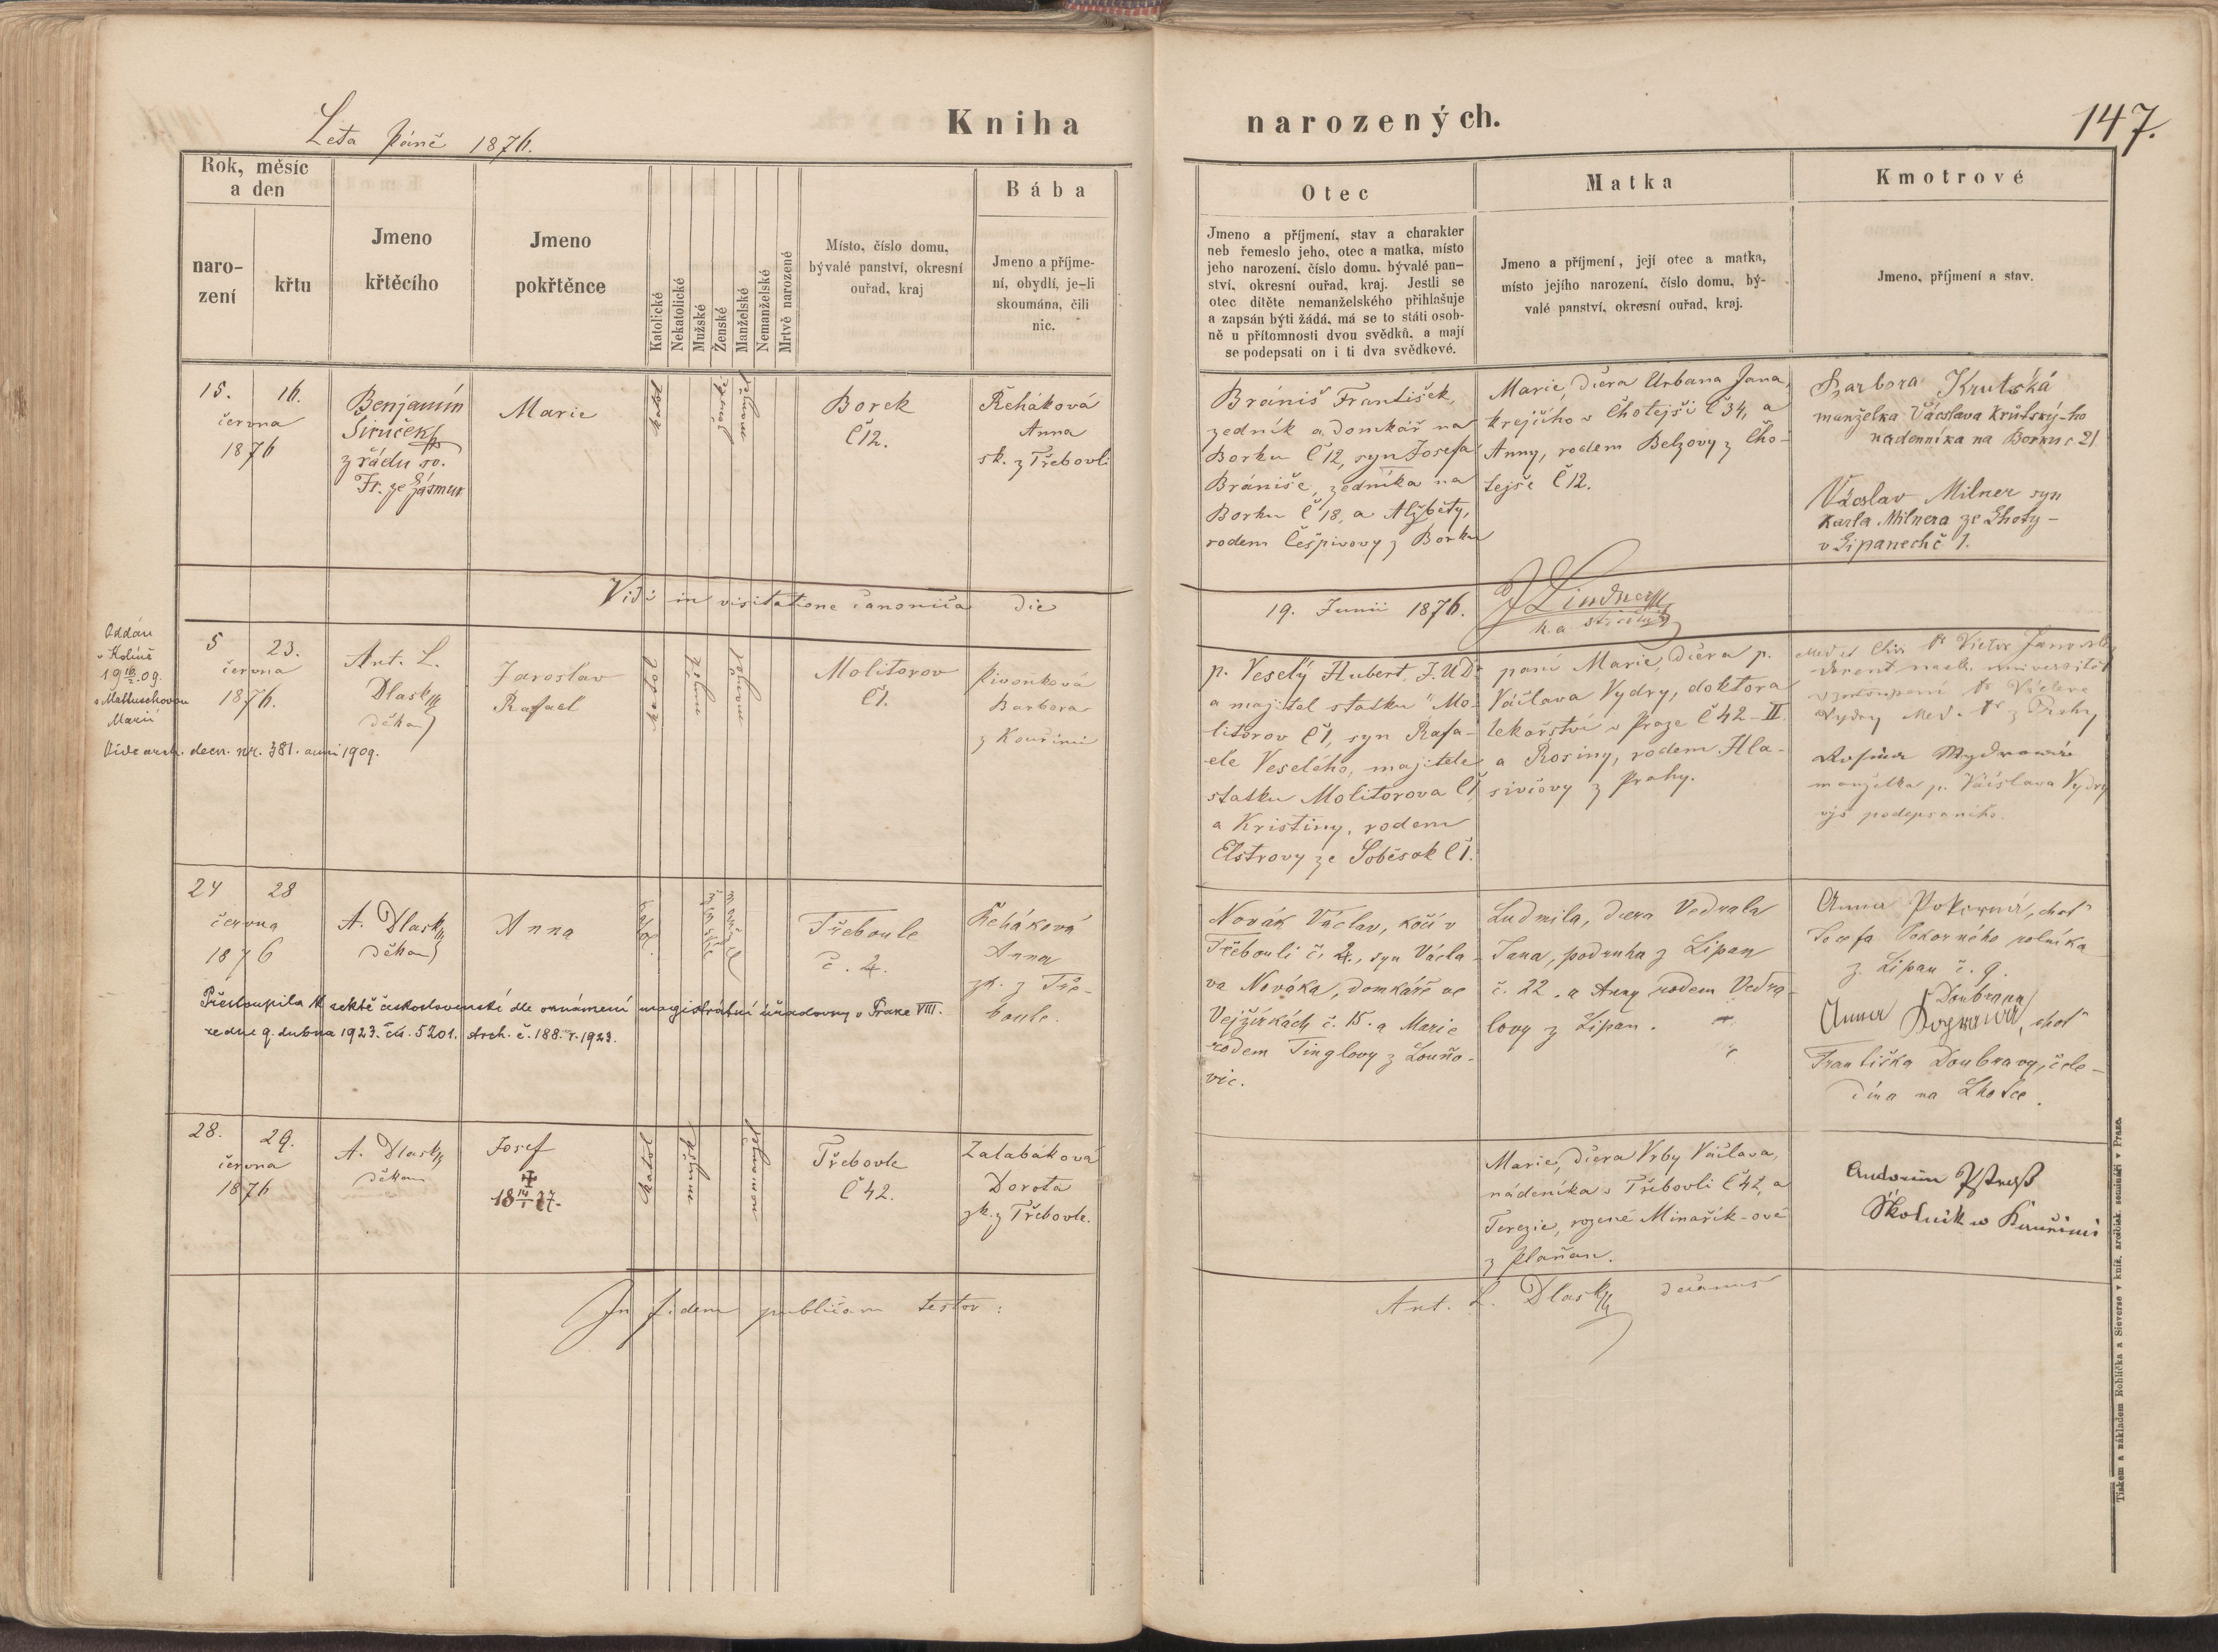 Léta Páně 1876.
Kniha
narozených.
147.
Rok, měsíc
a den
naro-
zení
křtu
Jmeno
křtěcího
Jmeno
pokřtěnce
Katolické
Nekatolické
Mužské
Ženské
Manželské
Nemanželské
Mrtvě narozené
Místo, číslo domu,
bývalé panství, okresní
ouřad, kraj
Bába
Jmeno a příjme-
ní, obydlí, je-li
skoumána, čili
nic.
Otec
Jmeno a příjmení, stav a charakter
neb řemeslo jeho, otec a matka, místo
jeho narození, číslo domu, bývalé pan-
ství, okresní ouřad, kraj. Jestli se
otec dítěte nemanželského přihlašuje
a zapsán býti žádá, má se to státi osob-
ně u přítomnosti dvou svědků, a mají
se podepsati on i ti dva svědkové.
Matka
Jmeno a příjmení, její otec a matka,
místo jejího narození, číslo domu, bý-
valé panství, okresní ouřad, kraj.
Kmotrové
Jmeno, příjmení a stav.
15. 16.
června
1876
Benjamín
Sirůček
z řádu sv.
Fr. ze Zásmuk
Marie
katol
ženské
Borek
Č 12.
Řeháková
Anna
zk. z Třebovli
Brániš František,
zedník a domkář na
Borku Č 12, syn Josefa
Brániše, zedníka na
Borku č 18, a Alžběty,
rodem Češpivovy z Borku
Marie, dcera Urbana Jana,
krejčího v Chotejši Č 34, a
Anny, rodem Belzovy z Cho-
tejše Č 12.
Barbora Krutská
manželka Václava Krutský-ho
nadenníka na Borku č 21
Václav Milner syn
Karla Milnera ze Lhoty -
v Lipanech č 1.
Vidi in visitatione canonica die
19. Junii 1876. J Lindner
Oddán
v Kolíně
s Mattuschovou
Marií
Vide arch. decan. nr. 381. anni 1909.
5 23.
června
1876.
Ant. L.
Dlask
děkan
Jaroslav
Rafael
katol
Molitorov
Č 1.
Pivoňková
Barbora
z Kouřimi
p. Veselý Hubert, J.U.Dr
a majitel statku "Mo-
litorov Č 1, syn Rafa-
ele Veselého, majitele
statku Molitorova Č 1,
a Kristiny, rodem
Elstrovy ze Soběšok č 1.
paní Marie, dcera p.
Václava Vydry, doktora
lékařství v Praze Č 42-II.
a Rosiny, rodem Hla-
sivcovy z Prahy.
Med. et Chir. Dr Victor Janovský
docent na universitě
v zastoupení Dr Václava
Vydry Med. Dr z Prahy
Rosina Wydrová
manželka p. Václava Vydry
výš podepsaného.
24 28
června
1876
A. Dlask
děkan
Anna
katol.
ženské
manžel
Třeboule
č. 4.
Řeháková
Anna
zk. z Tře-
boule.
Přestoupila k sektě československé dle oznámení magistrátní úřadovny v Praze VIII.
ze dne 9. dubna 1923. čís. 5201. Arch. č. 188. r. 1923.
Novák Václav, kočí v
Třebouli č. 4., syn Václa-
va Nováka, domkáře ve
Vejžirkách č. 15. a Marie
rodem Tinglovy z Louňo-
vic.
Ludmila, dcera Vedrala
Jana, podruha z Lipan
č. 22. a Anny rodem Vedra-
lovy z Lipan.
Anna Pokorná, choť
Josefa Pokorného rolníka
z Lipan č. 9.
Doubrava
Anna, choť
Františka Doubravy, čele-
dína na Lhotce.
28. 29.
června
1876
A. Dlask
děkan
Josef
katol
mužské
nemanžel
Třebovle
č 42.
Zalabáková
Dorota
zk. z Třebovle.
Marie, dcera Vrby Václava,
nádeníka v Třebovli č 42, a
Terezie, rozené Minařík-ové
z Plaňan.
Antonín Pstroß
Školník w Kauřimi
In fidem publicam testor:
Ant. L. Dlask decanus
Tiskem a nákladem Rohlíčka a Sieverse v kníž. arcibisk. semináři v Praze.